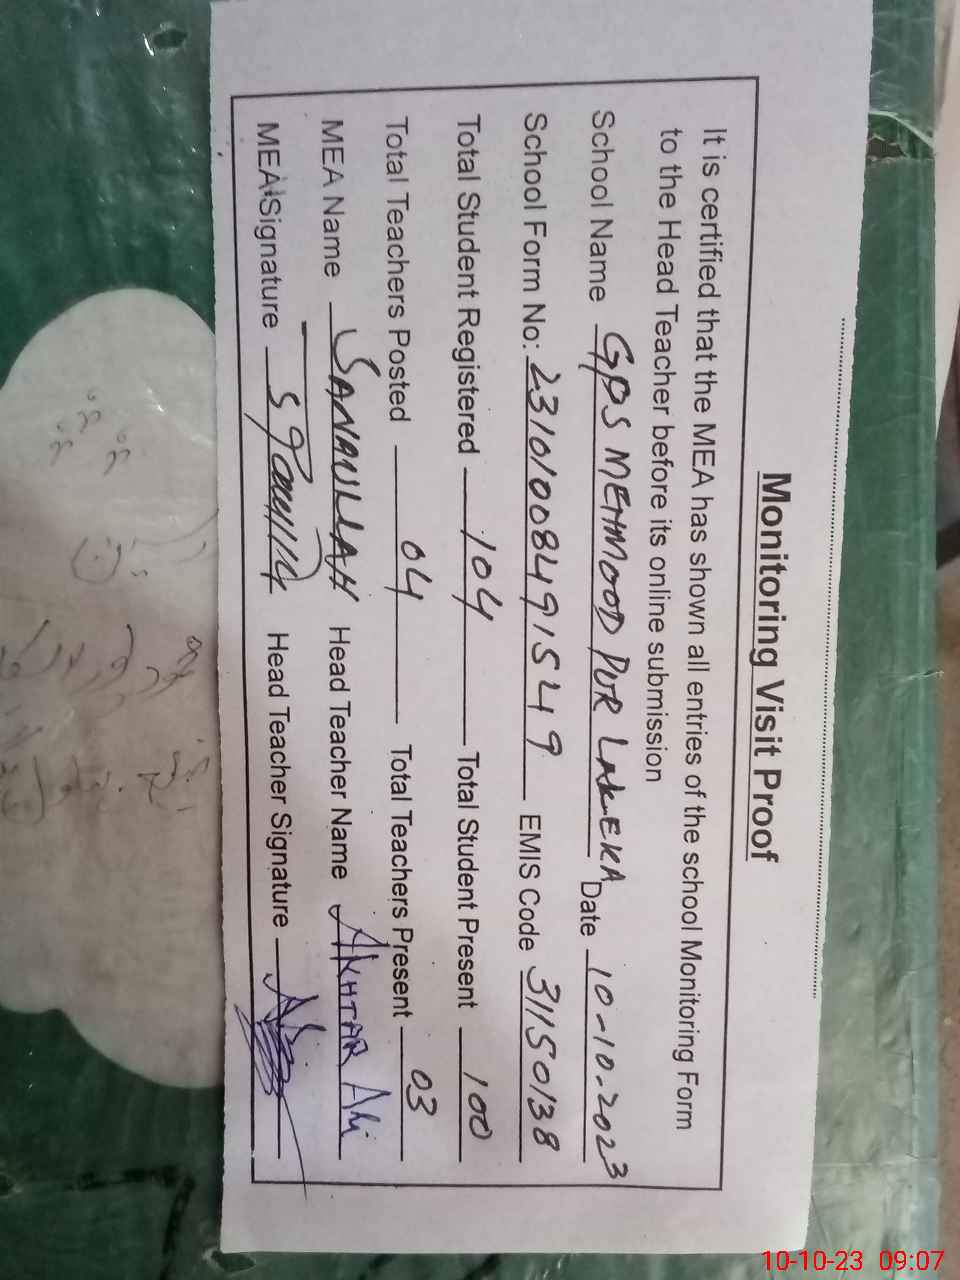 Monitoring Visit Proof
It is certified that the MEA has shown all entries of the school Monitoring Form
to the Head Teacher before its online submission
School Name GPS MEHMOOD PUR LAK-EKA Date 10-10-2023
School Form No: 23101008491549 EMIS Code 31150138
Total Student Registered 104 Total Student Present 100
Total Teachers Posted 04 Total Teachers Present 03
MEA Name SANAULLAH Head Teacher Name AKHTAR Ali
MEA Signature Head Teacher Signature
10-10-23 09:07